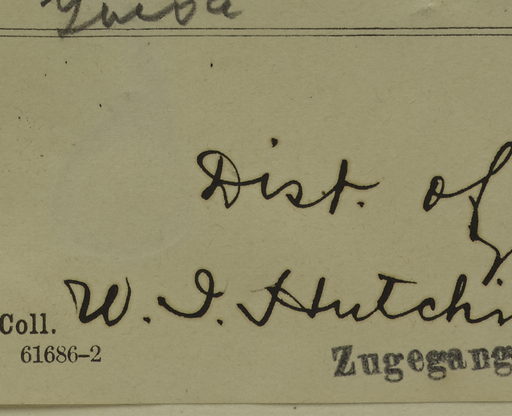 Dist. of
Coll. W. I. Hutchin
61686–2
Zugegang